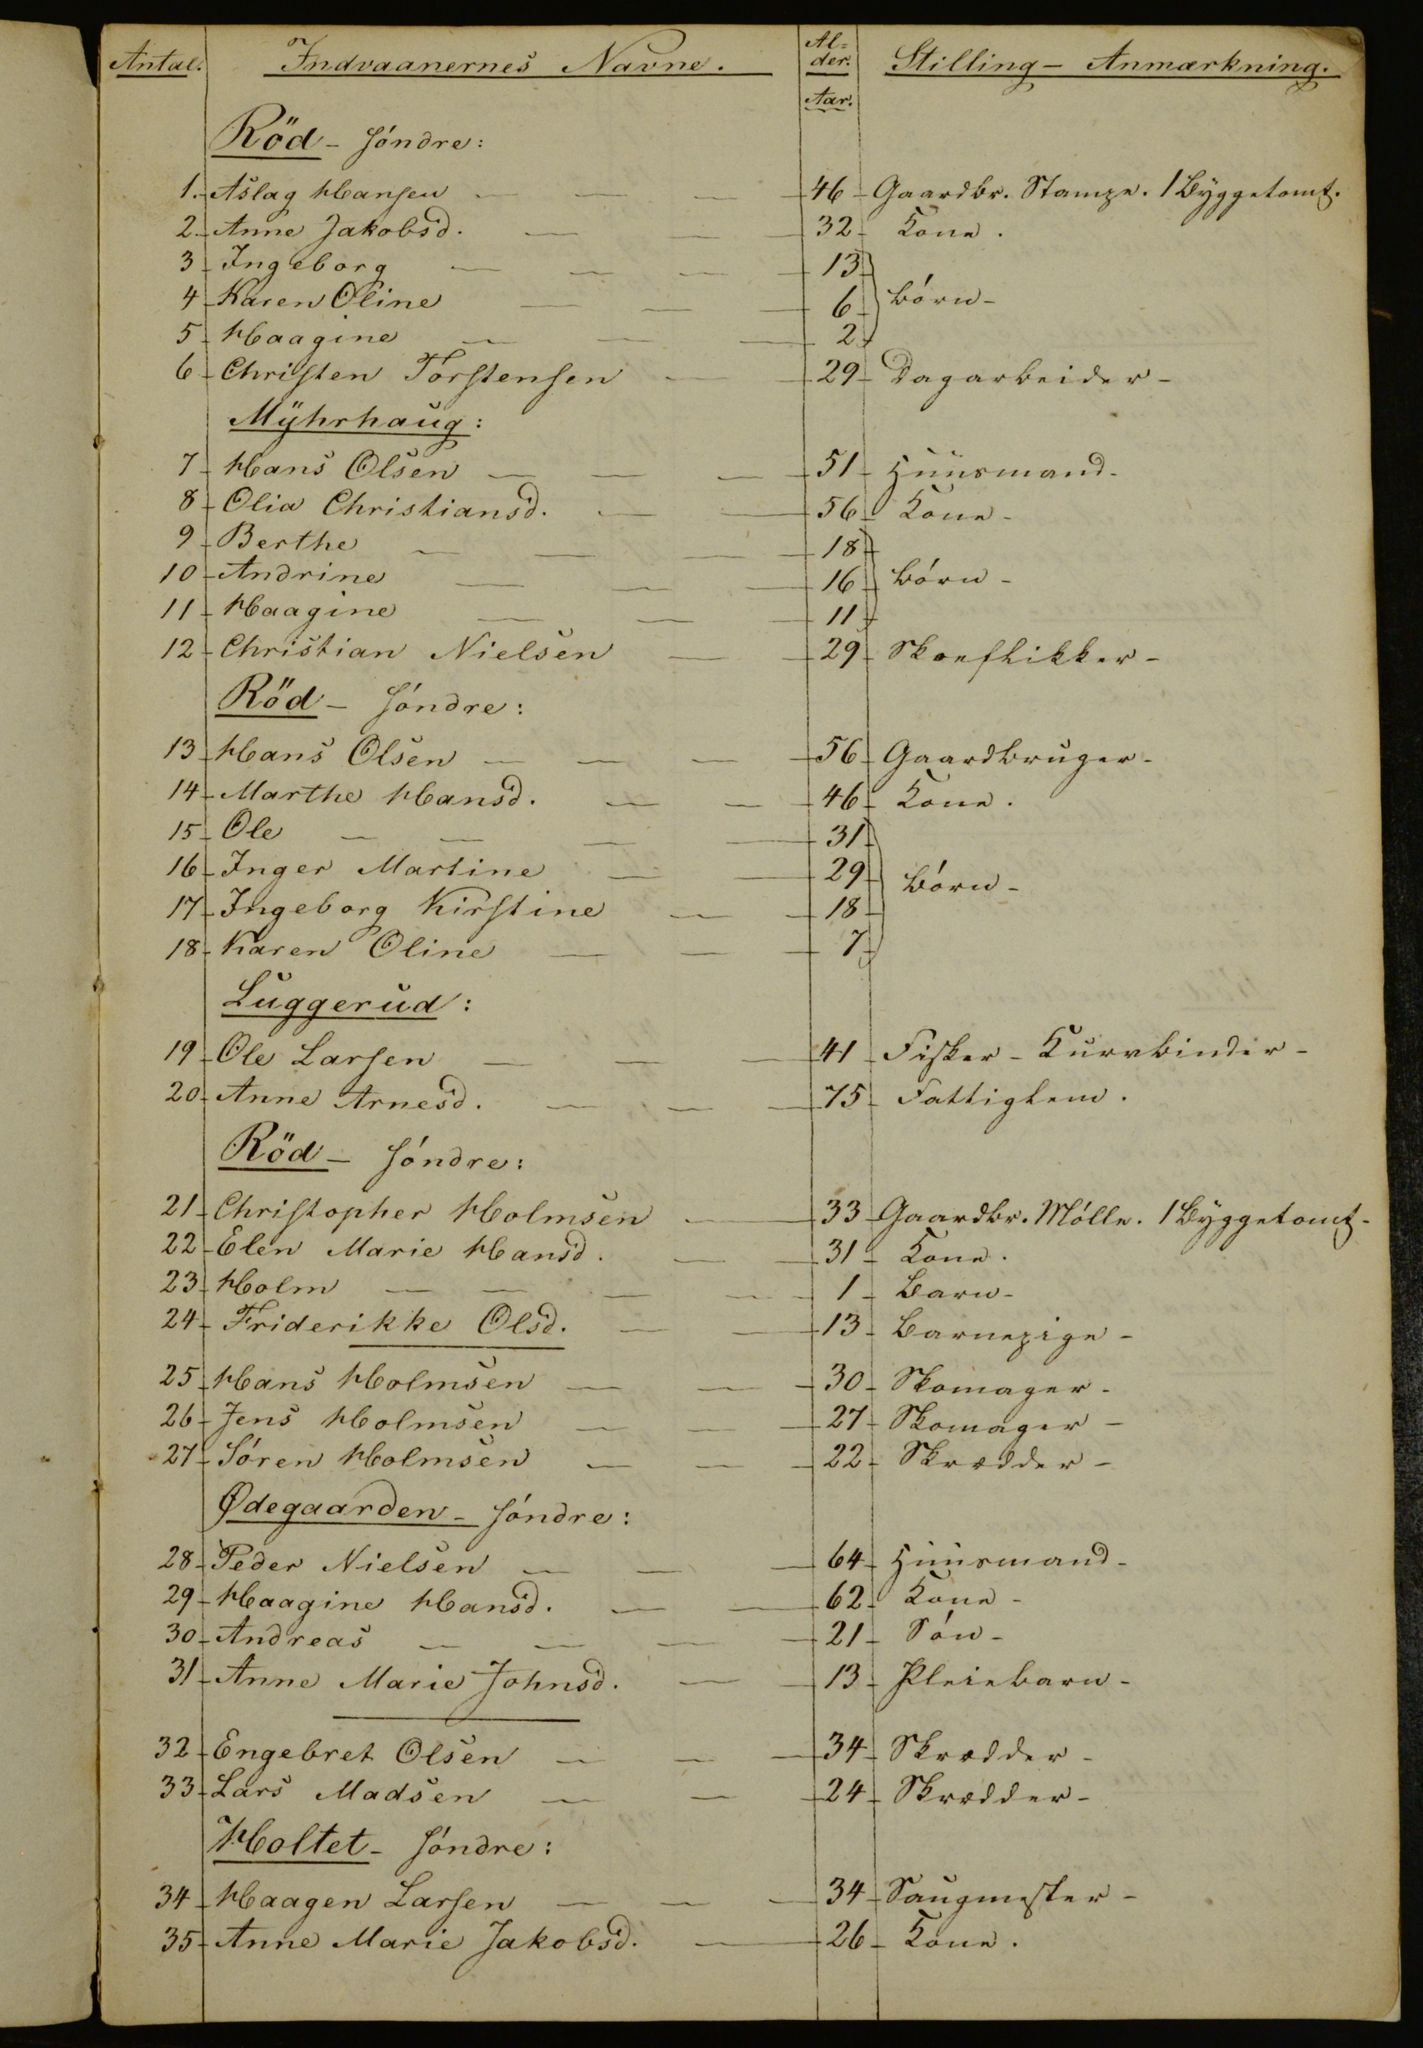 Antal. Indvaanernes Navne. Al-der. Stilling - Anmærkning.
Aar.
Röd - söndre:
1. Aslag Hansen 46 Gaardbr. Stampe. 1 Byggetomt.
2. Anne Jakobsd. 32 Kone.
3 Ingeborg 13
4 Karen Oline 6 börn
5 Haagine 2
6 Christen Torstensen 29 Dagarbeider
Mÿhrhaug:
7 Hans Olsen 51 Huusmand
8 Olia Christiansd. 56 Kone
9 Berthe 18
10 Andrine 16 börn
11 Haagine 11
12 Christian Nielsen 29 Skoeflikker
Röd - söndre:
13 Hans Olsen 56 Gaardbruger
14 Marthe Hansd. 46 Kone.
15 Ole 31
16 Inger Martine 29 börn
17 Ingeborg Kirstine 18
18 Karen Oline 7
Luggerud:
19 Ole Larsen 41 Fisker - Kurvbinder
20 Anne Arnesd. 75 Fattiglem.
Röd - söndre:
21 Christopher Holmsen 33 Gaardbr. Mölle. 1 Byggetomt
22 Elen Marie Hansd. 31 Kone.
23 Holm 1 Barn
24 Friderikke Olsd. 13 Barnepige
25 Hans Holmsen 30 Skomager
26 Jens Holmsen 27 Skomager
27 Sören Holmsen 22 Skrædder
Ødegaarden - söndre:
28 Peder Nielsen 64 Huusmand
29 Haagine Hansd. 62 Kone
30 Andreas 21 Sön
31 Anne Marie Johnsd. 13 Pleiebarn
32 Engebret Olsen 34 Skrædder
33 Lars Madsen 24 Skrædder
Holtet - söndre:
34 Haagen Larsen 34 Saugmester
35 Anne Marie Jakobsd. 26 Kone.